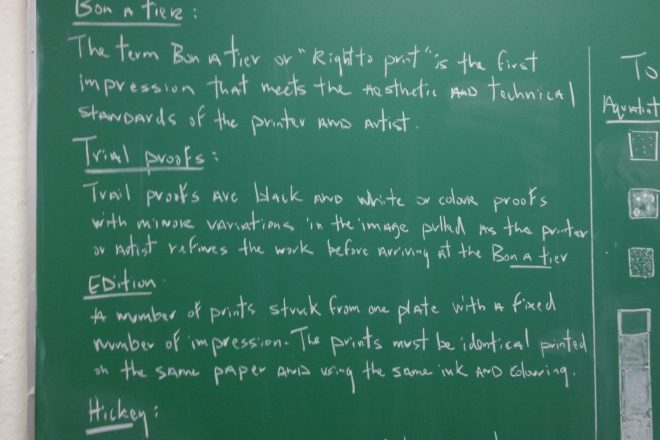 Bon A tier:
The term Bon A tier or "Right to print" is the first
impression that meets the Aesthetic AND Technical
standards of the printer AND Artist.
Trial proofs:
Trail proofs are black AND white or colour proofs
with minor variations in the image pulled As the printer
or Artist refines the work before arriving at the Bon a tier
Edition
A number of prints struck from one plate with a fixed
number of impression. The prints must be identical printed
on the same paper AND using the same ink AND colouring.
Hickey:
To
Aquatint